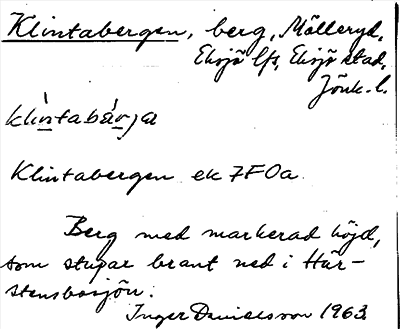 Klintabergen, berg, Mölleryd,
Eksjö lfs, Eksjö stad,
Jönk. l.
klintabárja
Klintabergen ek 7F0a
Berg med markerad höjd,
som stupar brant ned i Här-
stensbosjön.
Inger Danielsson 1963